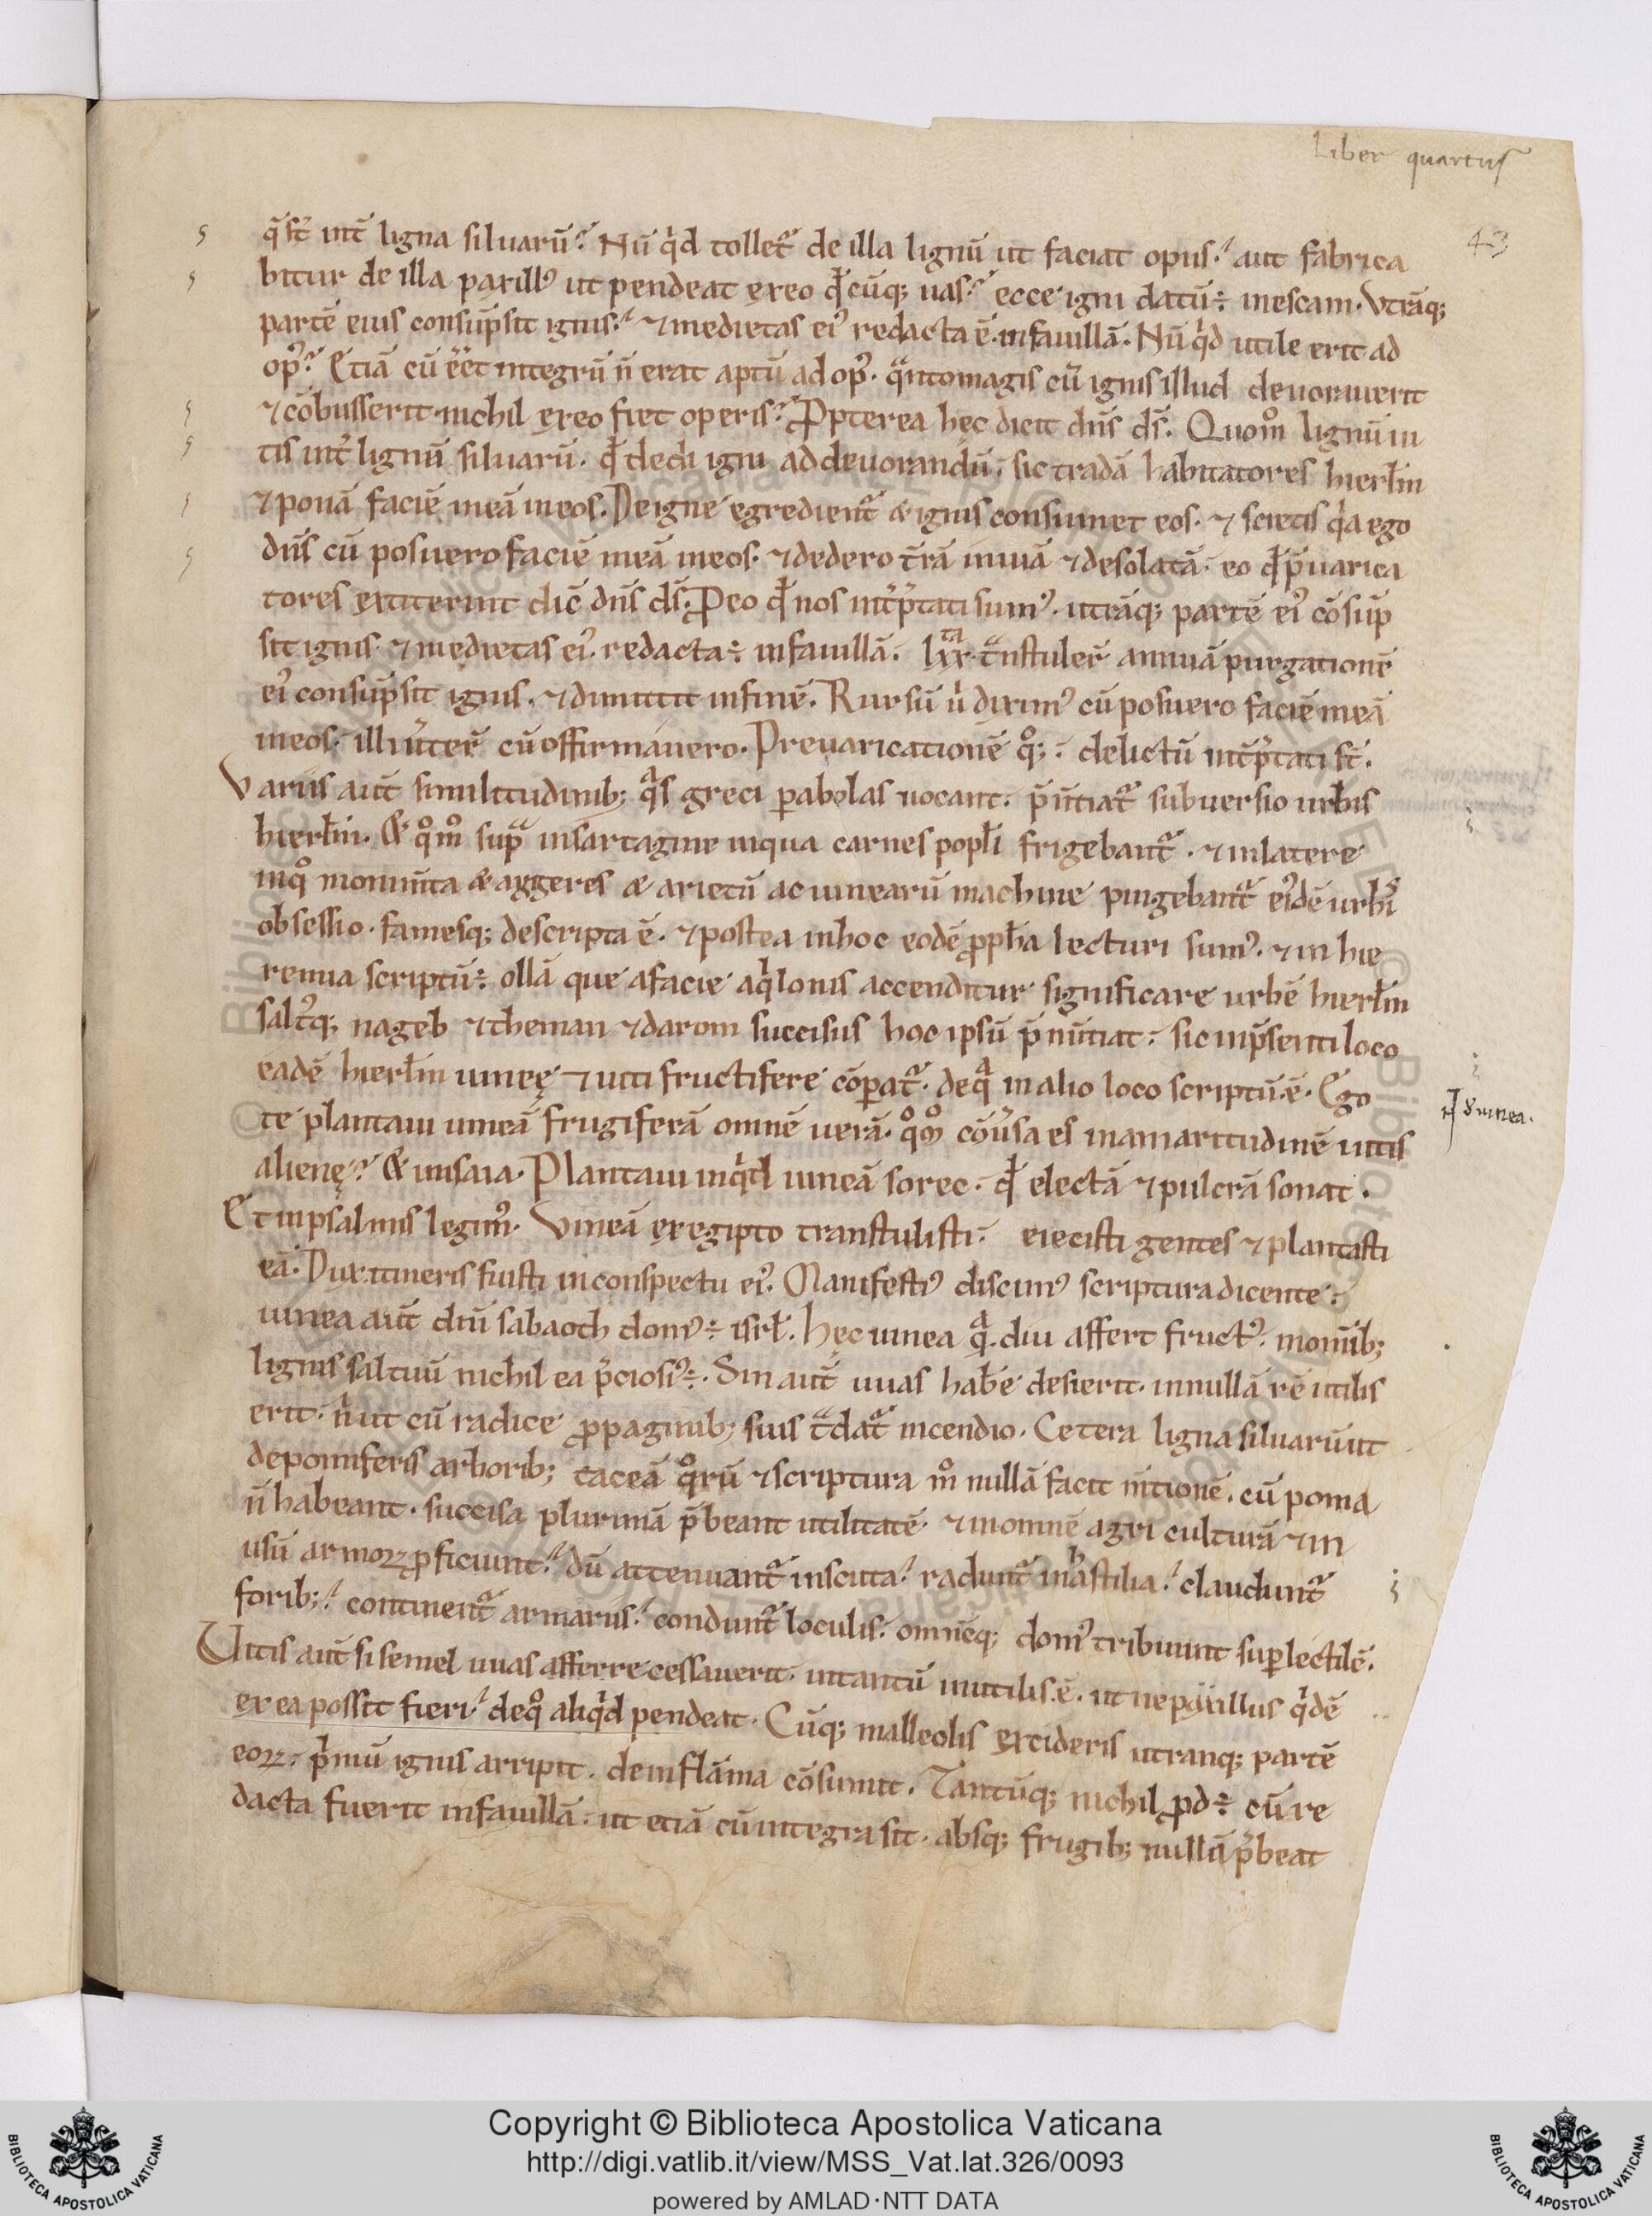 Liber quartus
43
q̄ st̄ int̄ ligna siluarū? Nū qͥd tollet᷑ de illa lignū ut faciat opus? aut fabrica
bitur de illa paxillꝰ ut pendeat exeo qđcūq; uas? ecce igni datū÷ inescam. Vtrāq;
partē eius consūpsit ignis? ⁊ medietas eiꝰ redacta ē. infauillā. Nū qͥd utile erit ad
opꝰ? Etiā cū eēt integrū n̄ erat aptū ad opꝰ. qͣnto magis cū ignis illud deuorauerit
⁊ cōbusserit. nichil exeo fiet operis? Ꝓpterea hęc dicit dn̄s ds̄. Quom̊ lignū ui
tis int̄ lignū siluarū. qđ dedi igni ad deuorandū. sic tradā habitatores hierłm
⁊ ponā faciē meā ineos. De igne egredient᷑ & ignis consumet eos. ⁊ scietis qͥa ego
dn̄s cū posuero faciē meā ineos. ⁊ dedero t̄rā inuiā ⁊ desolatā. eo qđ p̄uarica
tores extiterint dic̄ dn̄s ds̄. Ꝓeo qđ nos int̄p̄tati sumꝰ. utrāq; partē eiꝰ cōsūp
sit ignis. ⁊ medietas eiꝰ. redacta÷ infauillā. lxx.ta tͣnstuler̄ annuā purgationē
eiꝰ consūpsit ignis. ⁊ dimittit infinē. Rursū ů diximꝰ cū posuero faciē meā
ineos. illi ůter̄ cū offirmauero. Preuaricationē qͦ;. delictū int̄p̄tati st̄.
Variis aut̄ similitudinib; qͣs greci ꝑabolas uocant. p̄nūtiat᷑ subuersio urbis
hierłm. & qͦm̊ supͣ insartagine inqua carnes popłi frigebant᷑. ⁊ inlatere
inqͦ monim̄ta & aggeres & arietū ac uinearū machine pingebant᷑ eiꝰdē urbis
obsessio. famesq; descripta ē. ⁊ postea inhoc eodē ꝓpħa lecturi sumꝰ. ⁊ in hie
remia scriptū÷ ollā que afacie aqͥlonis accenditur significare urbē hierłm
saltꝰq; nageb ⁊ theman ⁊ darom succisus hoc ipsū p̄nūtiat. sic inp̄senti loco
eadē hierłm uineę ⁊ uiti fructifere cōꝑat᷑. deqͣ in alio loco scriptū.ē. Ego
te plantaui uineā frugiferā omnē uerā. qͦm̊ cōůsa es inamaritudinē uitis
alienę? & inisaia. Plantaui inqͥd uineā sorec. qđ electā ⁊ pulcrā sonat.
Et inpsalmis legimꝰ. Vineā exegipto transtulisti. eiecisti gentes ⁊ plantasti
eā. Dux itineris fuisti inconspectu eiꝰ. Manifestiꝰ discimꝰ scriptura dicente.
uinea aut̄ dn̄i sabaoth domꝰ÷ isrł. hęc uinea qͣ.diu affert fructꝰ. inomīb;
lignis saltuū nichil ea p̄ciosiꝰ÷. Sin aut̄ uuas habe᷑ desierit. innullā rē utilis
erit. nͥ ut cū radice ꝓpaginib; suis tͣdat᷑ incendio. Cetera ligna siluarū ut
depomiferis arborib; taceā qͦrū ⁊ scriptura m̊ nullā facit m̄tionē. cū poma
n̄ habeant. succisa plurimā p̄beant utilitatē. ⁊ inomnē agri culturā ⁊ in
usū armoꝝ ꝓficiunt? dū attenuant᷑ inscuta? radunt᷑ inhastilia? claudunt᷑
forib;? continent᷑ armariis? condunt᷑ loculis. omnēq; domꝰ tribuunt suꝑlectilē.
Vitis aut̄ si semel uuas afferre cessauerit. intantū inutilis.ē. ut ne paxillus qͥdē
ex ea possit fieri? deqͦ aliqͥd pendeat. Cūq; malleolis excideris utranq; partē
eoꝝ. pͥmū ignis arripit. dein flāma cōsumit. Tantūq; nichil ꝓd÷ cū re
dacta fuerit infauillā. ut etiā cū integra sit. absq; frugib; nullū p̄beat
d' uinea.
Copyright © Biblioteca Apostolica Vaticana
http://digi.vatlib.it/view/MSS_Vat.lat.326/0093
powered by AMLAD·NTT DATA
BIBLIOTECA APOSTOLICA VATICANA
BIBLIOTECA APOSTOLICA VATICANA